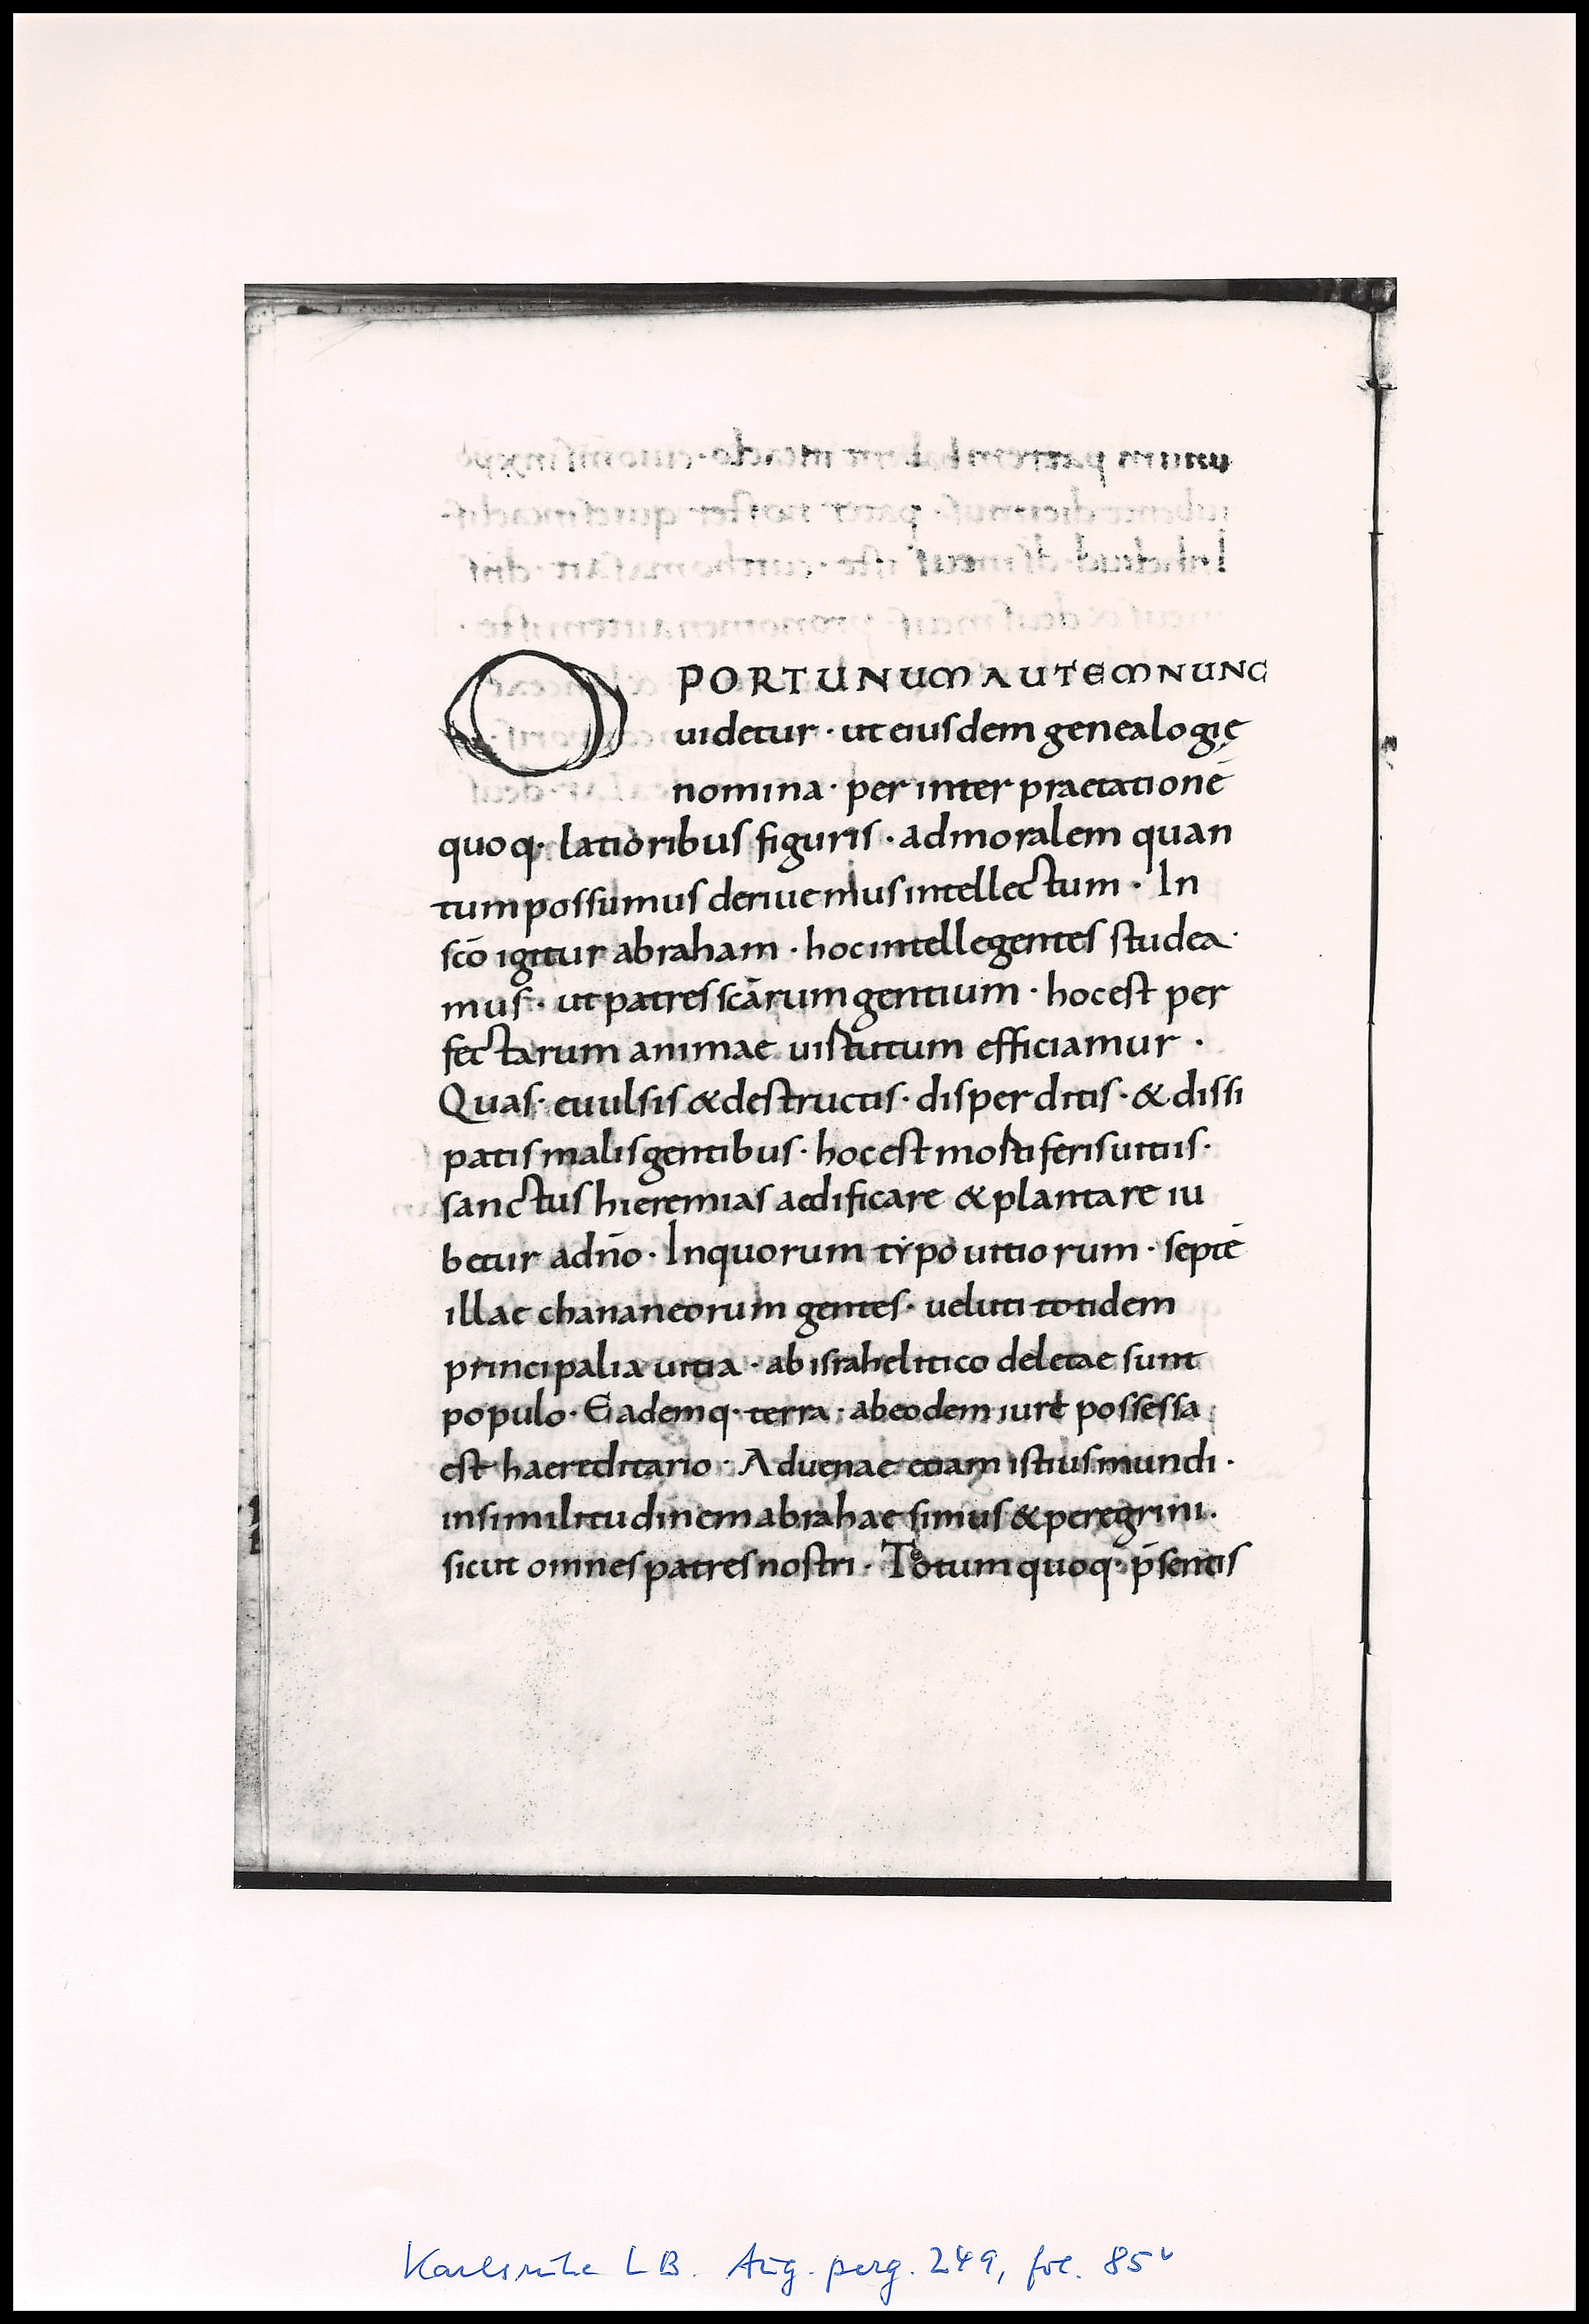 OPORTUNUM AUTEM NUNC
uidetur · ut eiusdem genealogię
nomina · per inter praetationē
quoq· latioribus figuris · ad moralem quan
tum possumus deriuemus intellectum · In
sc̄o igitur abraham · hoc intellegentes studea
mus · ut patres sc̄arum gentium · hoc est per
fectarum animae uirtutum efficiamur ·
Quas · euulsis & destructis · disperditis · & dissi
patis malis gentibus · hoc est mortiferis uitiis ·
sanctus hieremias aedificare & plantare iu
betur ad̄no · In quorum tẏpo uitiorum · septē
illae chananeorum gentes · ueluti totidem
principalia uitia · ab israhelitico deletae sunt
populo · Eademq· terra · ab eodem iure possessa
est haereditario · Aduenae etiam istius mundi ·
in similitudinem abrahae simus & peregrini ·
sicut omnes patres nostri · Totum quoq· p̄sentis
Karlsruhe LB. Aug. perg. 249, fol. 85v